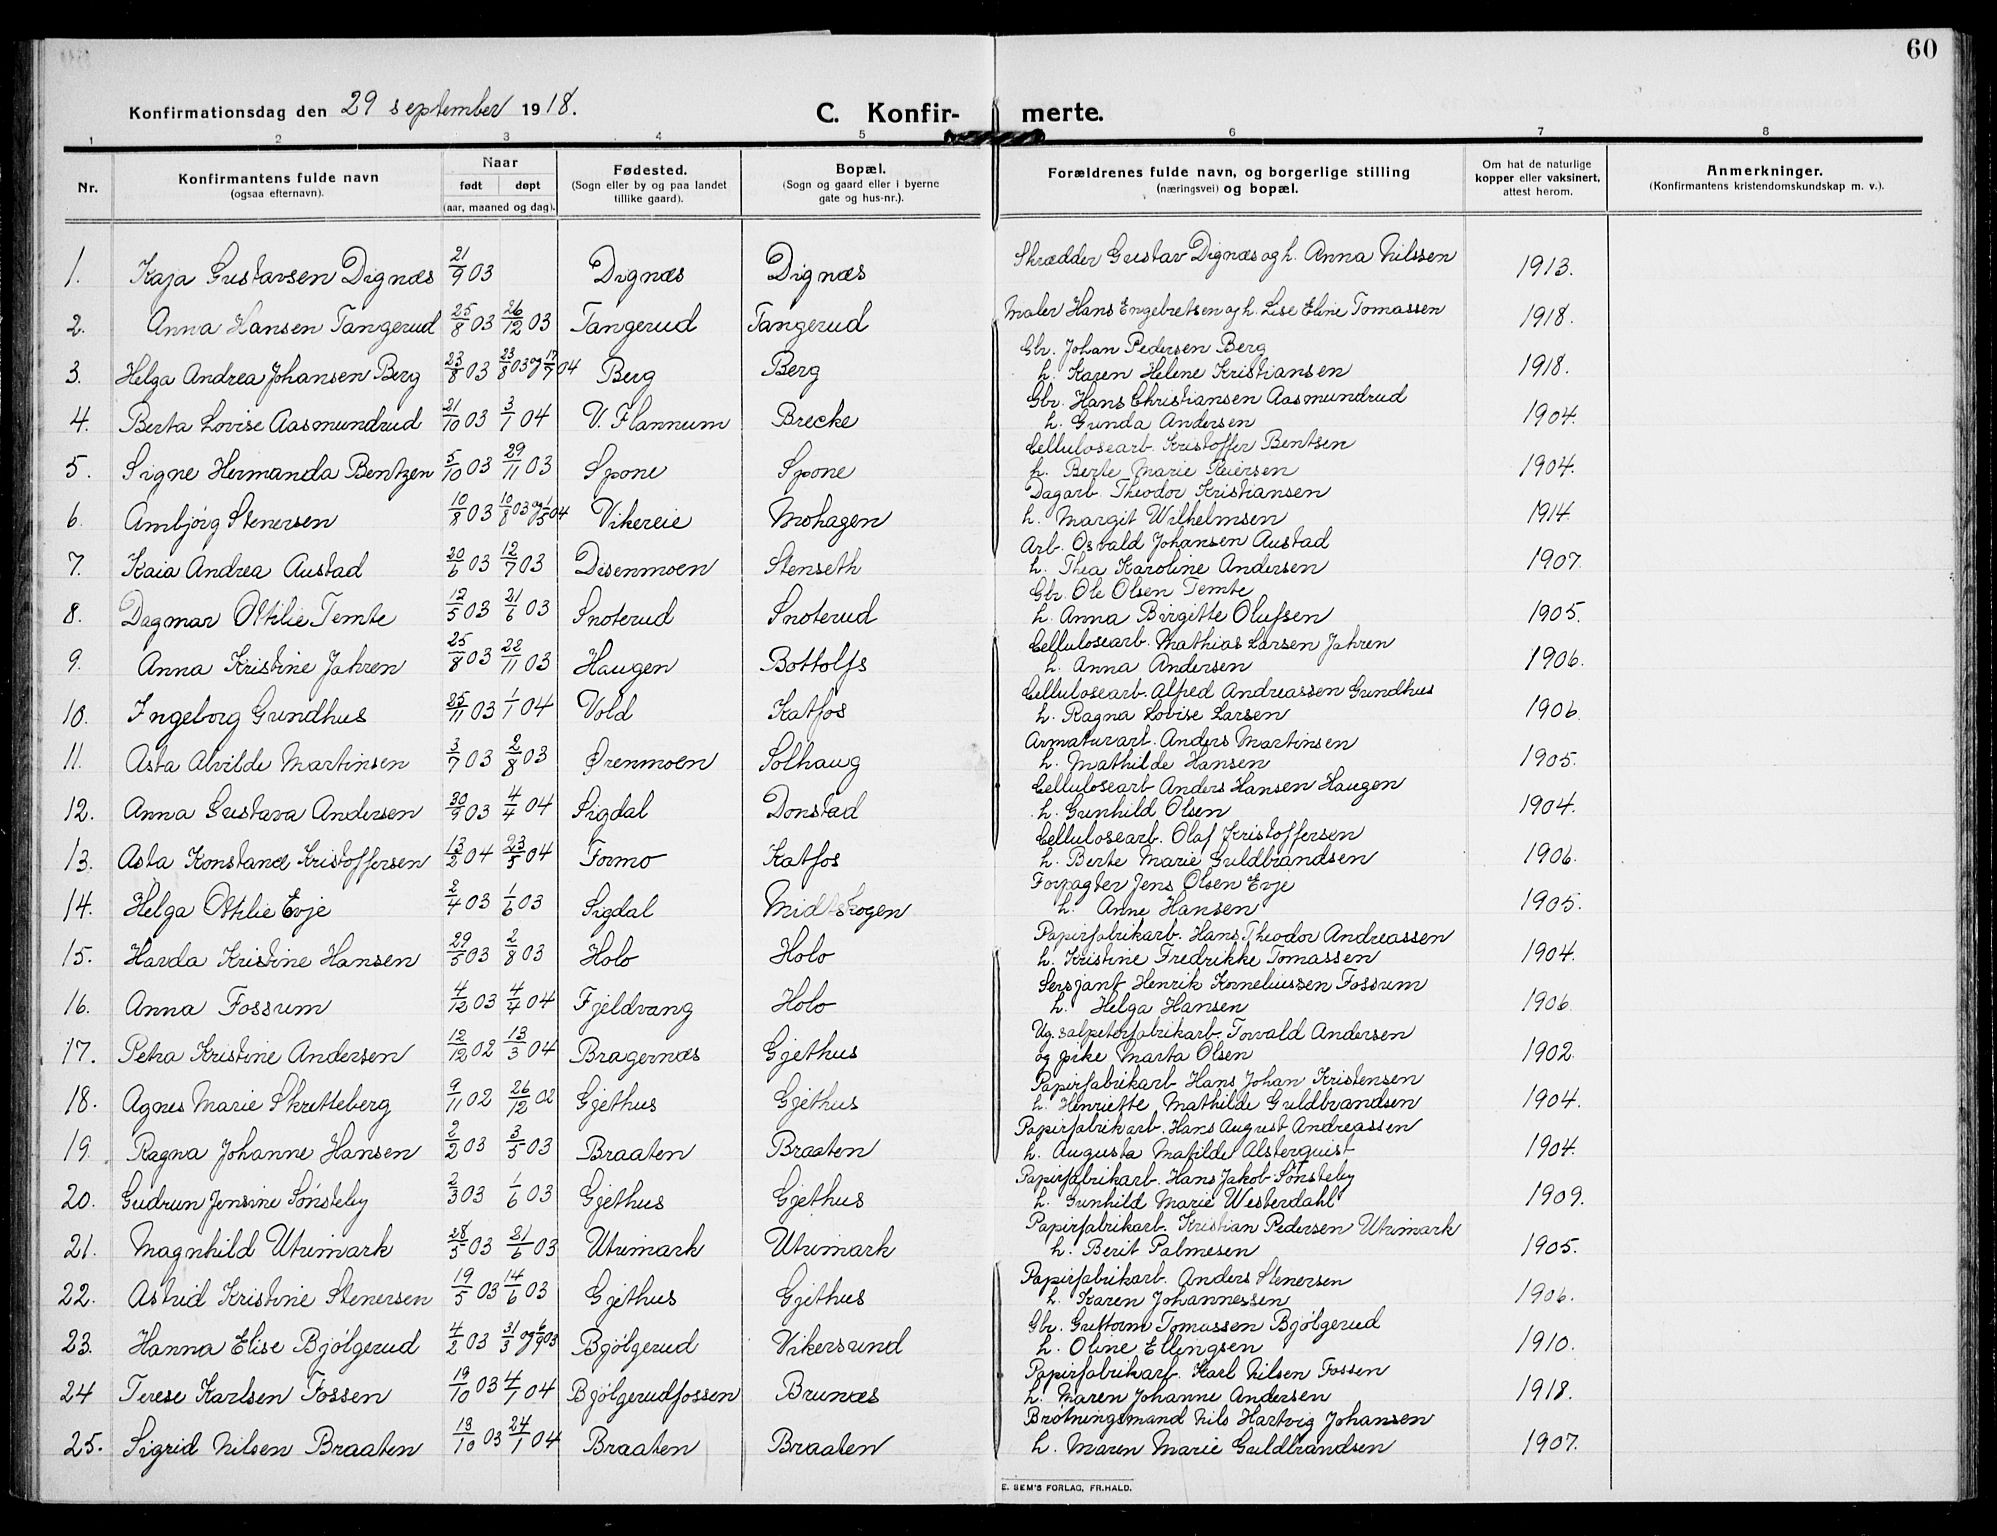 60
Konfirmationsdag den 29 september 1918.
C. Konfir- merte.
1 2 3 4 5 6 7 8
Nr.
Konfirmantens fulde navn
(ogsaa efternavn).
Naar
født døpt
(aar, maaned og dag).
Fødested.
(Sogn eller by og paa landet
tillike gaard).
Bopæl.
(Sogn og gaard eller i byerne
gate og hus-nr.).
Forældrenes fulde navn, og borgerlige stilling
(næringsvei) og bopæl.
Om hat de naturlige
kopper eller vaksinert,
attest herom.
Anmerkninger.
(Konfirmantens kristendomskundskap m. v.).
1. Kaja Gustavsen Dignæs 21/9 03 Dignæs Dignæs Skrædder Gustav Dignæs og h. Anna Nilssen 1913.
2. Anna Hansen Tangerud 25/8 03 26/12 03 Tangerud Tangerud Maler Hans Engebretsen og h. Lise Eline Tomassen 1918.
3. Helga Andrea Johansen Berg 23/8 03 23/8 03 og 17/7 04 Berg Berg Gbr. Johan Pedersen Berg
h. Karen Helene Kristiansen 1918.
4. Berta Lovise Aasmundrud 21/10 03 3/1 04 V. Flannum Brecke Gbr. Hans Christiansen Aasmundrud
h. Gunda Andersen 1904.
5. Signe Hermanda Bentzen 5/10 03 29/11 03 Spone Spone Cellulosearb. Kristoffer Bentsen
h. Berte Marie Reiersen 1904.
6. Ambjórg Stenersen 10/8 03 10/8 03 og 1/5 04 Vikereie Mohagen Dagarb. Theodor Kristiansen
h. Margit Wilhelmsen 1914.
7. Kaia Andrea Austad 20/6 03 12/7 03 Disenmoen Stenseth Arb. Osvald Johansen Austad
h. Thea Karoline Andersen 1907.
8. Dagmar Otilie Temte 12/5 03 21/6 03 Snoterud Snoterud Gbr. Ole Olsen Temte
h. Anna Birgitte Olufsen 1905.
9. Anna Kristine Jahren 25/8 03 22/11 03 Haugen Bottolfs Cellulosearb. Mathias Larsen Jahren
h. Anna Andersen 1906.
10. Ingeborg Gundhus 25/11 03 1/1 04 Vold Katfos Cellulosearb. Alfred Andreassen Gundhus
h. Ragna Lovise Larsen 1906
11. Asta Alvilde Martinsen 3/7 03 2/8 03 Ørenmoen Solhaug Armaturarb. Anders Martinsen
h. Mathilde Hansen 1905.
12. Anna Gustava Andersen 30/9 03 4/4 04 Sigdal Donstad Cellulosearb Anders Hansen Haugen
h. Gunhild Olsen 1904.
13. Asta Konstance Kristoffersen 13/2 04 23/5 04 Formo Katfos Cellulosearb. Olaf Kristoffersen
h. Berte Marie Guldbrandsen 1906.
14. Helga Otilie Evje 2/4 03 1/6 03 Sigdal Midtskogen Forpagter Jens Olsen Evje
h. Anne Hansen 1905.
15. Harda Kristine Hansen 29/5 03 2/8 03 Holo Holo Papirfabrikarb. Hans Theodor Andreassen
h. Kristine Fredrikke Tomassen 1904.
16. Anna Fossum 4/12 03 4/4 04 Fjeldvang Holo Sersjant Henrik Korneliussen Fossum
h. Helga Hansen 1906
17. Petra Kristine Andersen 12/12 02 13/3 04 Bragernæs Gjethus Ug. salpeterfabrikarb. Torvald Andersen
og pike Marta Olsen 1902
18. Agnes Marie Skretteberg 9/11 02 26/12 02 Gjethus Gjethus Papirfabrikarb Hans Johan Kristensen
h. Henriette Mathilde Guldbrandsen 1904.
19. Ragna Johanne Hansen 2/2 03 3/5 03 Braaten Braaten Papirfabrikarb. Hans August Andreassen
h. Augusta Matilde Alsterquist 1904.
20. Gudrun Jensine Sónsteby 2/3 03 1/6 03 Gjethus Gjethus Papirfabrikarb. Hans Jakob Sónsteby
h. Gunhild Marie Westerdahl 1909.
21. Magnhild Utrimark 28/5 03 21/6 03 Utrimark Utrimark Papirfabrikarb. Kristian Pedersen Utrimark
h. Berit Palmesen 1905.
22. Astrid Kristine Stenersen 19/5 03 14/6 03 Gjethus Gjethus Papirfabrikarb. Anders Stenersen
h. Karen Johannessen 1906.
23. Hanna Elise Bjólgerud 4/2 03 31/3 og 6/9 03 Bjólgerud Vikersund Gbr. Guttorm Tomassen Bjólgerud
h. Oline Ellingsen 1910.
24 Terese Karlsen Fossen 19/10 03 4/1 04 Bjólgerudfossen Brunæs Papirfabrikarb. Karl Nilsen Fossen
h. Maren Johanne Andersen 1918.
25. Sigrid Nilsen Braaten 13/10 03 24/1 04 Braaten Braaten Brotningsmand Nils Hartvig Johansen
h. Maren Marie Guldbrandsen 1907.
E. SEM'S FORLAG, FR.HALD.